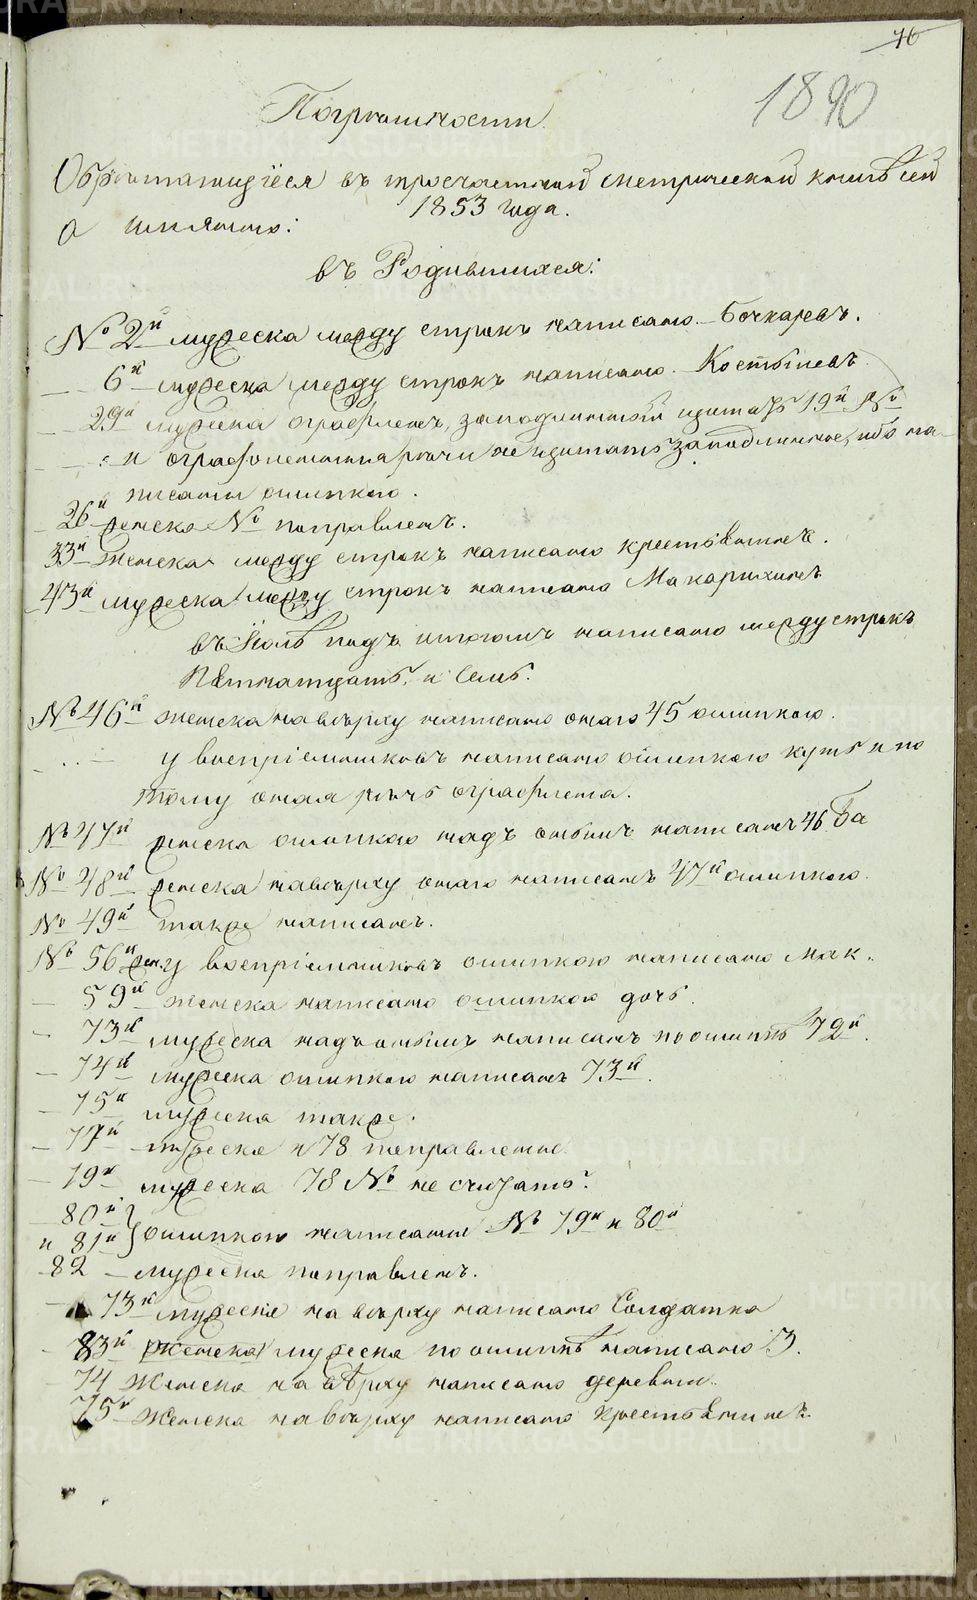 76
1890
Погрѣшности
Обрѣтающіеся въ троечастной метрической книгѣ сей
1853 года.
а имянно:
въ Родившихся:
№ 2й мужеска между строкъ написано Бочкаревъ.
6й мужеска между строкъ написано Костылевъ
29й мужеска ографленъ, заподлинный щитать 19й №
и ографленныя рѣчи не щитать заподлинное, ибо на-
писаны ошипкою.
26й женска № поправленъ.
33й женска между строкъ написано крестьянинъ.
43й мужеска между строкъ написано Макарихинъ
въ Іюль подъ итогомъ написано между строкъ
Пятнатцать и Семь.
№ 46й женска на вѣрху написано онаго 45 ошипкою.
у воспріемниковъ написано ошипкою купт и по
тому оная рѣчь ографлена.
№ 47й женска ошипкою надъ онымъ написанъ 46 Ба
№ 48й женска на вѣрху онаго написанъ 47й ошипкою.
№ 49й также написанъ.
№ 56й жен. у воспріемниковъ ошипкою написано Мак.
59й женска написано ошипкою дочь.
73й мужеска надъ онымъ написанъ по ошипкѣ 72й.
74й мужеска ошипкою написанъ 73й.
75й мужеска также.
77й мужеска и 78 поправлены
79й мужеска 78 № не считать.
80й
и 81й } ошипкою написаны № 79й и 80й
82 мужеска поправленъ.
73й мужеска на вѣрху написано Солдатка
83й женска мужеска по ошипкѣ написано З.
74 Женска на вѣрху написано деревни.
75й Женска на вѣрху написано Крестьянинъ